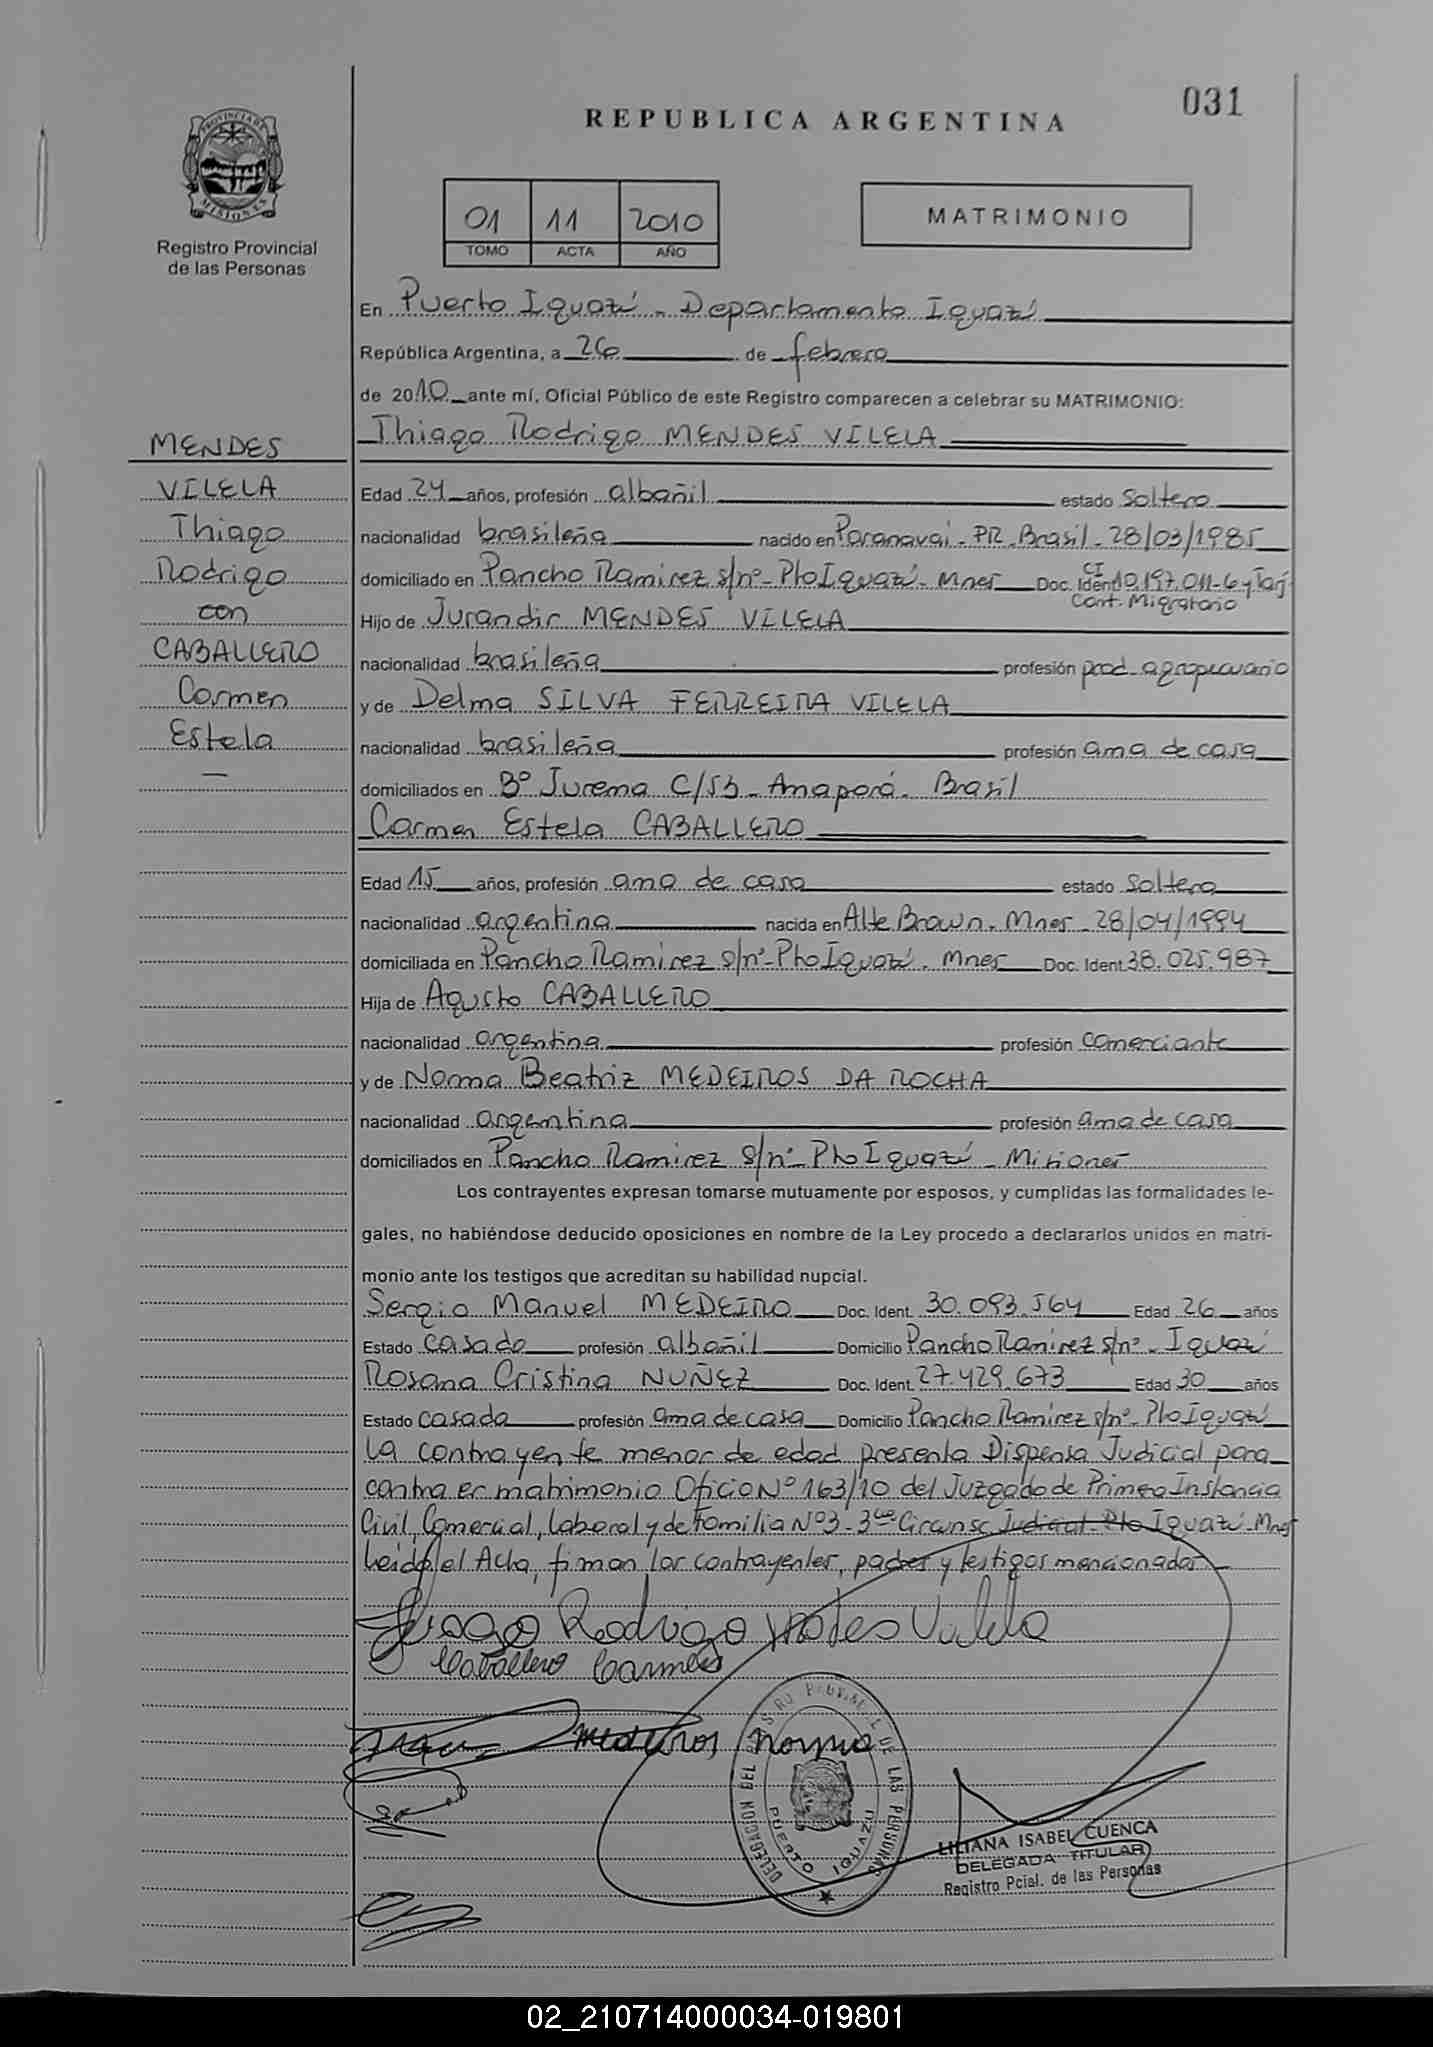 031
REPUBLICA ARGENTINA
PROVINCIA DE
MISIONES
Registro Provincial
de las Personas
01 11 2010
TOMO ACTA AÑO
MATRIMONIO
En Puerto Iguazú - Departamento Iguazú
República Argentina, a 26 de febrero
de 2010 ante mí, Oficial Público de este Registro comparecen a celebrar su MATRIMONIO:
Thiago Rodrigo MENDES VILELA
MENDES
VILELA
Thiago
Rodrigo
con
CABALLERO
Carmen
Estela
—
Edad 24 años, profesión albañil estado soltero
nacionalidad brasileña nacido en Paranavai - PR - Brasil - 28/03/1985
domiciliado en Pancho Ramirez s/nº - Pto Iguazú - Mnes Doc. Ident. CI 10.197.011-6 y Tarj.
Cont. Migratorio
Hijo de Jurandir MENDES VILELA
nacionalidad brasileña profesión prod. agropecuario
y de Delma SILVA FERREIRA VILELA
nacionalidad brasileña profesión ama de casa
domiciliados en Bº Jurema C/53 - Amaporá - Brasil
Carmen Estela CABALLERO
Edad 15 años, profesión ama de casa estado soltera
nacionalidad argentina nacida en Alte Brown - Mnes - 28/04/1994
domiciliada en Pancho Ramirez s/nº - Pto Iguazú - Mnes Doc. Ident. 38.025.987
Hija de Agusto CABALLERO
nacionalidad argentina profesión comerciante
y de Norma Beatriz MEDEIROS DA ROCHA
nacionalidad argentina profesión ama de casa
domiciliados en Pancho Ramirez s/nº - Pto Iguazú - Misiones
Los contrayentes expresan tomarse mutuamente por esposos, y cumplidas las formalidades le-
gales, no habiéndose deducido oposiciones en nombre de la Ley procedo a declararlos unidos en matri-
monio ante los testigos que acreditan su habilidad nupcial.
Sergio Manuel MEDEIRO Doc. Ident. 30.093.564 Edad 26 años
Estado casado profesión albañil Domicilio Pancho Ramirez s/nº - Iguazú
Rosana Cristina NUÑEZ Doc. Ident. 27.429.673 Edad 30 años
Estado casada profesión ama de casa Domicilio Pancho Ramirez s/nº - Pto Iguazú
La contrayente menor de edad presenta Dispensa Judicial para
contraer matrimonio Oficio Nº 163/10 del Juzgado de Primera Instancia
Civil, Comercial, Laboral y de Familia Nº3 - 3ra Circunsc. Judicial - Pto Iguazú - Mnes
Leida el Acta, firman los contrayentes, padres y testigos mencionados
Rodrigo
Caballero Carmen
medeiros Norma
DELEGACION DEL REGISTRO PROVINCIAL DE LAS PERSONAS
PUERTO IGUAZU
LILIANA ISABEL CUENCA
DELEGADA TITULAR
Registro Pcial. de las Personas
02_210714000034-019801